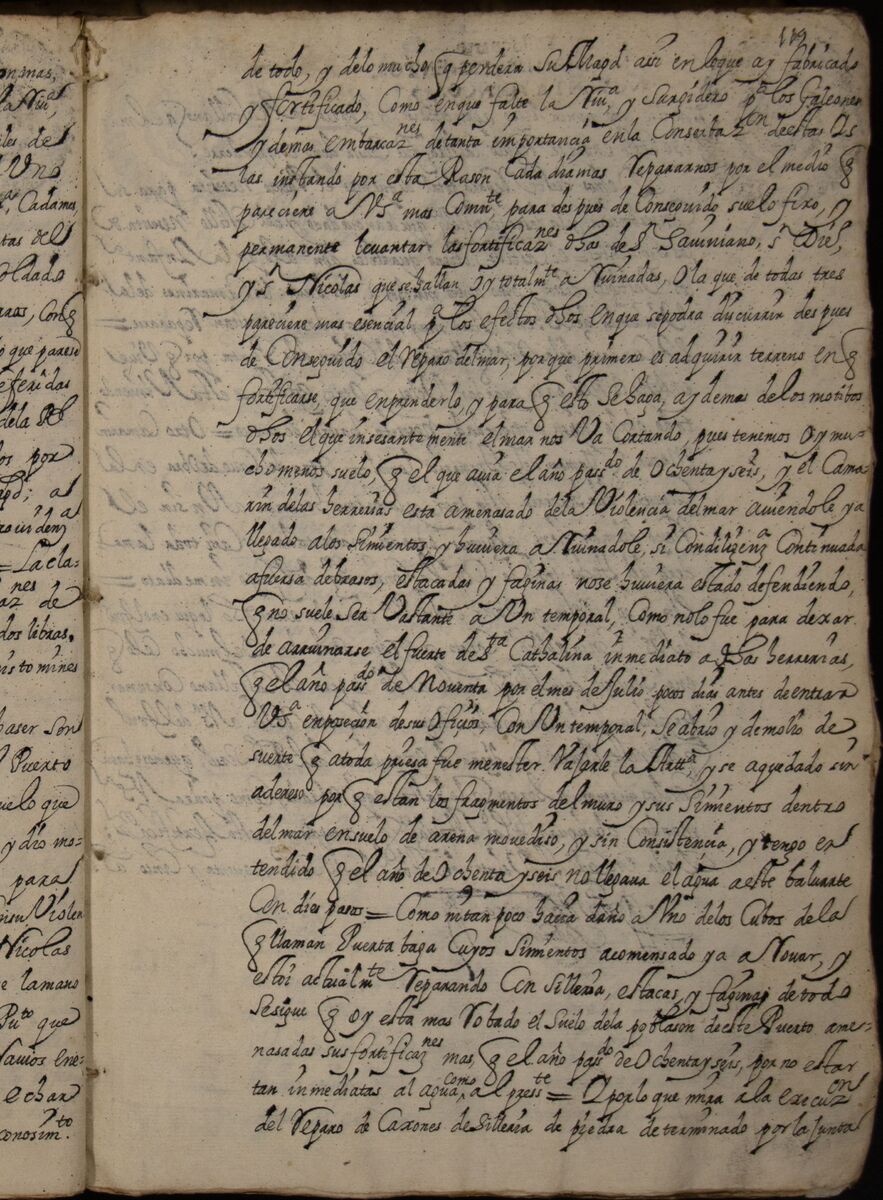 onmas,
la Rui.ª
ales de
Uno
ª, Cadames
tas del
oldado
rras, Con q̃
lo que parese
eferidas
dela Rl
los por
agd; a
=Lacla-
nes
az. de
dos libras.
istomines
haser son
Puerto
uelo que
y dio mo-
para
Violen
Nicolas
e lamano
Pu.to que
Navios ene-
echar
conosim.to
119
de todo, y delo mucho q̃ perdera su Magd. asi en loque ay fabricado
y fortificado, Como enque falte la Rui.ª, y Surgidero p.ª los Galeones
y demas embarcaz.nes de tanta importancia en la Conserbaz.on deestas Is
las instando por esta Rason Cada dia mas Repararnos por el medio q̃
pareciere a Vs.ª mas Comn.te para despues de Conseguido suelo fixo, y
permanente levantar las fortificaz.nes dhas de Sn. Sauiniano, Sn. Diel,
y Sn. Nicolas que se hallan oy total m.te a Ruinadas, O la que de todas tres
pareciere mas esencial p.ª los efectos dhos en que sepodra discurrir despues
de Conseguido el Reparo del mar, porque primero es adquirir terreno en q̃
fortificarse, que enprenderlo, y para q̃ esto se haga, ay demas delos motibos
dhos el que insesantemente el mar nos Va Cortando, pues tenemos oy mu-
cho menos suelo, q̃ el que auia el año pass.do de Ochenta y seis, y el Cama-
rin delas herrerias esta amenasado dela Violencia del mar auiendole ya
llegado alos Simientos, y huviera a Ruinadole, si Con diligenz.ª Continuada
afuersa debrasos, estacadas y faginas nose huviera estado defendiendo,
q̃ no suele ser Vastante a Un temporal, Como nolo fue para dexar
de arruinarse el fuerte de S.ta Cathalina inmediato a dhas herrerias,
q̃ el año pass.do de Noventa por el mes de Julio pocos dias antes de entrar
Vs.ª en posecion desus Oficios, Con Un temporal, Se abrio y demolio de
suerte q̃ atoda priesa fue menester Vajarle la Artt.ª, y se a quedado sin
adereso por q̃ estan los fragmentos del muro y sus Simientos dentro
del mar en suelo de arena movediso, y sin Consistencia, y tengo en
tendido q̃ el año de Ochenta y seis no llegava el agua a este baluarte
Con dies pasos = Como ni tan poco hacia daño a Uno delos Cubos de la
q̃ llaman Puerta baja Cuyos Simientos a comensado ya a Rovar, y
estoi actualm.te Reparando Con silleria, estacas, y faginas de todo
Se sigue q̃ oy esta mas Robado el Suelo dela poblason deeste Puerto ame-
nasadas sus fortificaz.nes mas, q̃ el año pass.do de Ochenta y seis, por no estar
tan inmediatas al agua, como al press.te = Y por lo que mira a la execuz.on
del Reparo de Caxones de Silleria de piedra determinado por la Junta